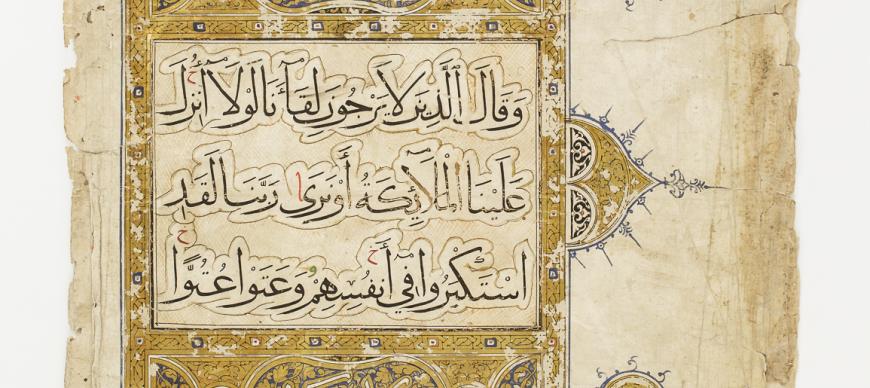 وَقَالَ الَّذِينَ لَا يَرْجُونَ لِقَآءَنَا لَوْلَا أُنْزِلَ
عَلَيْنَا الْمَلَآئِكَةُ أَوْ نَرَى رَبَّنَا لَقَدِ
اسْتَكْبَرُوا فِي أَنفُسِهِمْ وَعَتَوْا عُتُوًّا